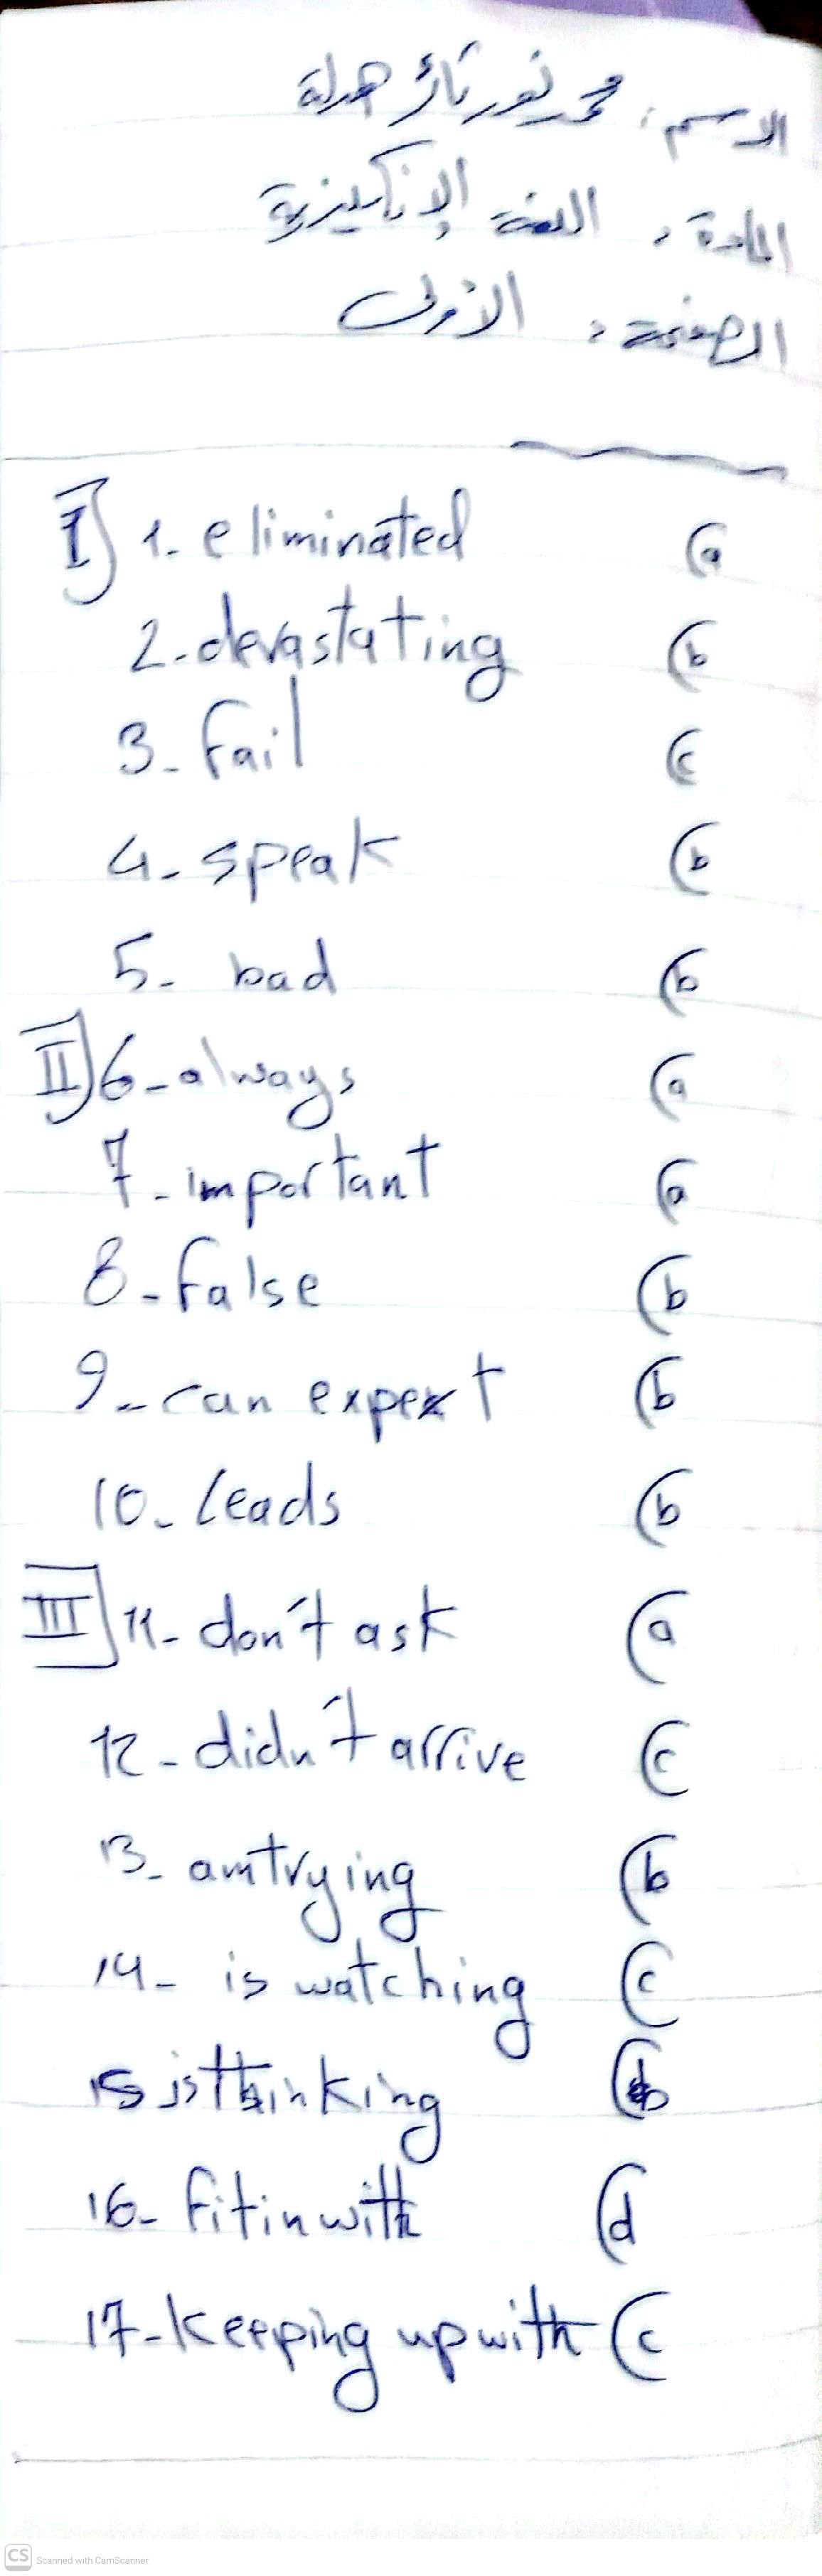 الاسم: محمد نور ثائر
المادة: اللغة الإنكليزية
الصفحة: الأولى
I) 1- eliminated (a
2- devastating (b
3- fail (c
4- speak (b
5- bad (b
II) 6- always (a
7- important (a
8- false (b
9- can expext (b
10- leads (b
III) 11- don't ask (a
12- didn't arrive (c
13- am trying (b
14- is watching (c
15 is thinking (b
16- fit in with (d
17- keeping up with (c
CS Scanned with CamScanner